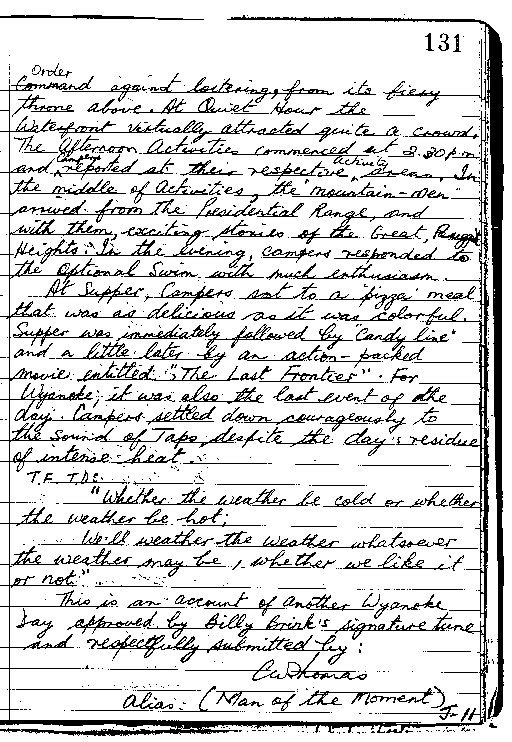 131
Order
Command against loitering, from its fiery
throne above. At Quiet Hour the
Waterfront virtually attracted quite a crowd.
The Afternoon Activities commenced at 2.30 p.m.
and Campers reported at their respective Activity areas. In
the middle of Activities, the "mountain-men"
arrived from the Presidential Range, and
with them, exciting stories of the Great, Rugged
Heights. In the evening, campers responded to
the Optional Swim with much enthusiasm.
At Supper, Campers sat to a 'pizza' meal
that was as delicious as it was colorful.
Supper was immediately followed by "Candy line"
and a little later by an action-packed
movie entitled: "The Last Frontier". For
Wyanoke, it was also the last event of the
day. Campers settled down courageously to
the sound of Taps, despite the day's residue
of intense heat.
T.F.T.D:
"Whether the weather be cold or whether
the weather be hot;
We'll weather the weather whatsoever
the weather may be, whether we like it
or not"
This is an account of another Wyanoke
Day approved by Billy Brink's signature tune
and respectfully submitted by:
CW Thomas
Alias: (Man of the Moment)
J-11